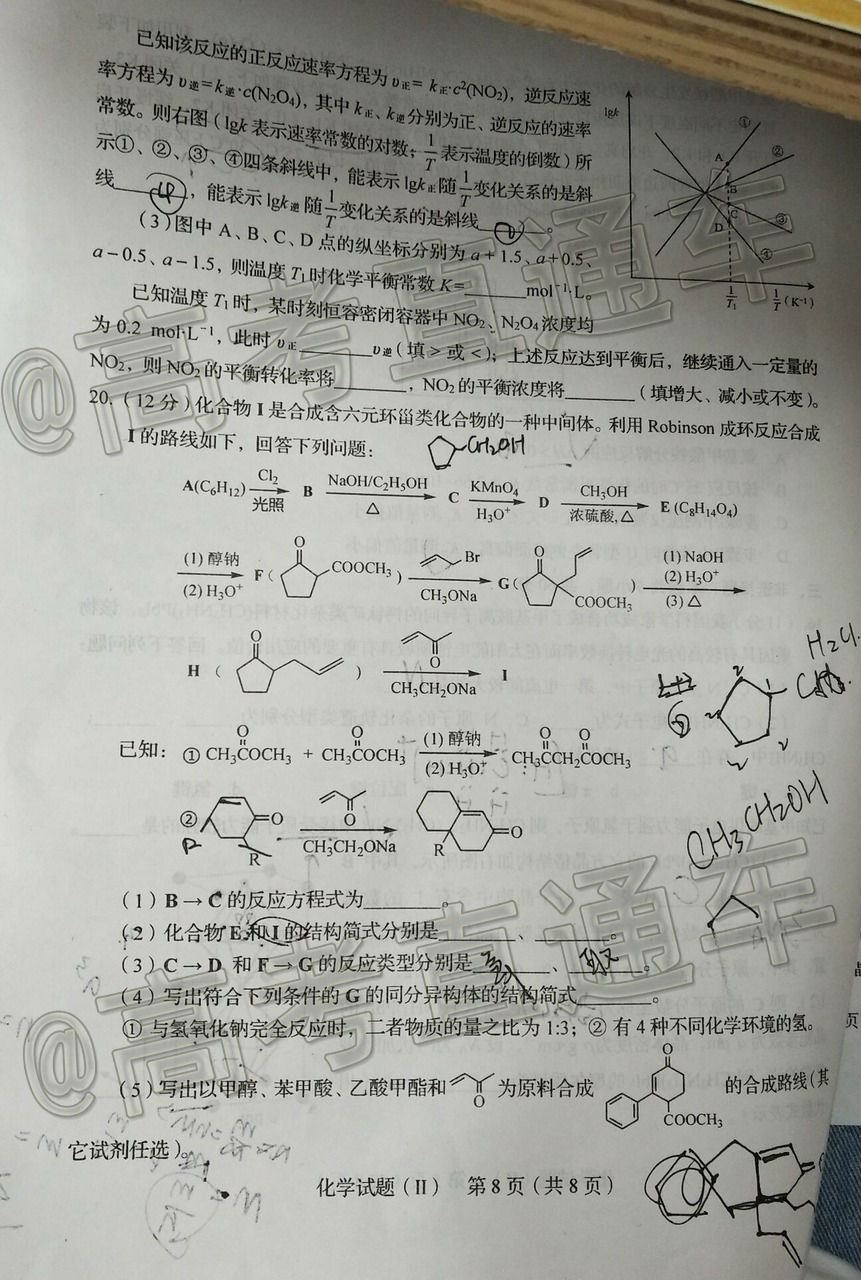 已知该反应的正反应速率方程为 υ正= k正·c²(NO₂)，逆反应速
率方程为 υ逆=k逆·c(N₂O₄)，其中 k正、k逆分别为正、逆反应的速率
常数。则右图(lgk 表示速率常数的对数；1/T 表示温度的倒数)所
示①、②、③、④四条斜线中，能表示 lgk正随 1/T 变化关系的是斜
线____，能表示 lgk逆 随 1/T 变化关系的是斜线____。
lgk
①
②
③
④
A
B
C
D
1/T₁
1/T (K⁻¹)
(3)图中 A、B、C、D 点的纵坐标分别为 a+1.5、a+0.5、
a-0.5、a-1.5，则温度 T₁时化学平衡常数 K=____mol⁻¹·L。
已知温度 T₁ 时，某时刻恒容密闭容器中 NO₂、N₂O₄ 浓度均
为 0.2 mol·L⁻¹，此时 υ正____υ逆(填>或<)；上述反应达到平衡后，继续通入一定量的
NO₂，则 NO₂ 的平衡转化率将____，NO₂ 的平衡浓度将____(填增大、减小或不变)。
20.(12 分)化合物 I 是合成含六元环甾类化合物的一种中间体。利用 Robinson 成环反应合成
I 的路线如下，回答下列问题：
CH₂OH
A(C₆H₁₂) Cl₂ 光照 B NaOH/C₂H₅OH △ C KMnO₄ H₃O⁺ D CH₃OH 浓硫酸,△ E (C₈H₁₄O₄)
(1) 醇钠 (2) H₃O⁺ F( O COOCH₃ ) Br CH₃ONa G( O COOCH₃ ) (1) NaOH (2) H₃O⁺ (3) △
H ( O ) O CH₃CH₂ONa I
已知：① CH₃COCH₃ + CH₃COCH₃ (1) 醇钠 (2) H₃O⁺ CH₃CCH₂COCH₃
② O R O CH₃CH₂ONa R O
CH₃CH₂OH
(1) B→C 的反应方程式为____。
(2) 化合物 E 和 I 的结构简式分别是____、____。
(3) C→D 和 F→G 的反应类型分别是____、____。
(4) 写出符合下列条件的 G 的同分异构体的结构简式____。
① 与氢氧化钠完全反应时，二者物质的量之比为 1:3；② 有 4 种不同化学环境的氢。
(5) 写出以甲醇、苯甲酸、乙酸甲酯和 O 为原料合成 O COOCH₃ 的合成路线(其
它试剂任选)。
化学试题(II) 第 8 页(共 8 页)
@高考直通车
@高考直通车